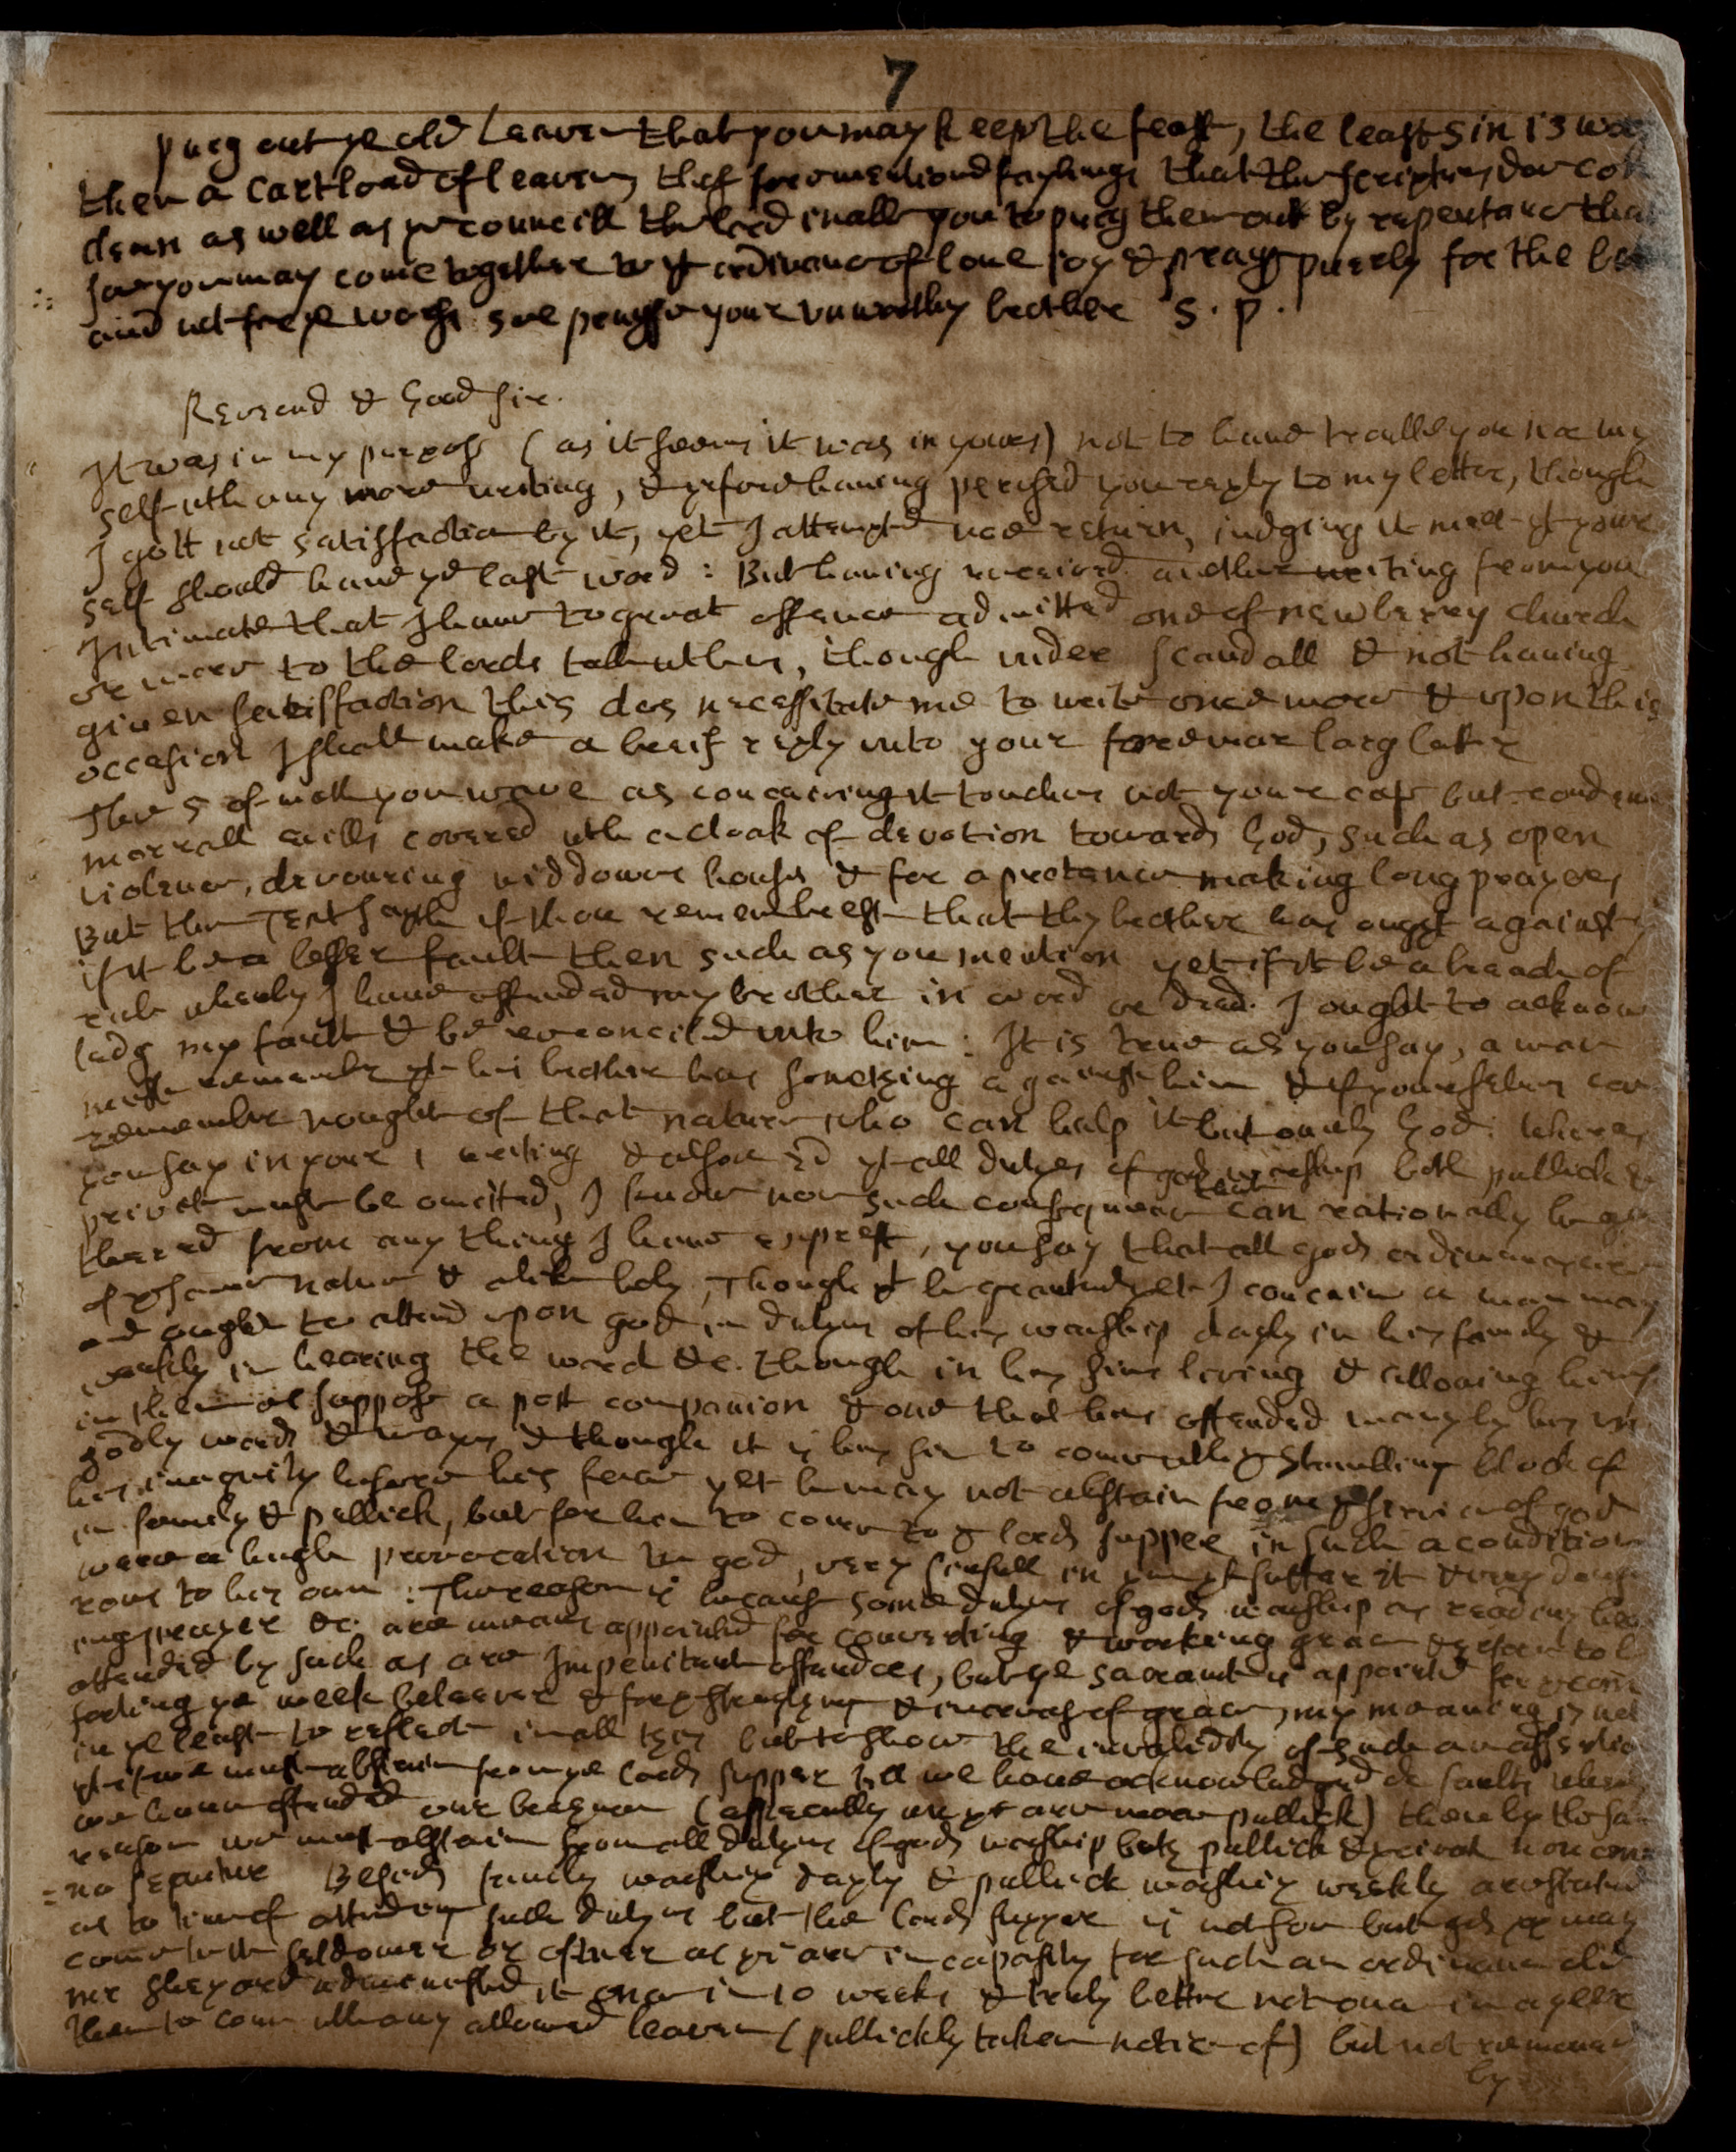 7
purg out ye old Leaven that you may keep the feast, the least sin is wor
then a Cartload of leaven, thes forementiond faylings that the scriptures doe con
demn as well as yr councill the lord inable you to purg them out by repentance that
soe you may come together to yt ordinance of love joy & prays purely for the bet
and not for ye wors soe prays your unworthy brother S. P.
Reverend & Good Sir.
It was in my purpose (as it seems it was in yours) not to have trouble you nor my
self wth any more writing, & yrfore having perused your reply to my letter, though
I gott not satisfaction by it, yet I attempted noe return, judging it meet yt your
self should have ye last word: But having received another writing from you
Intimate that I have to great offence admitted one of newberry church
or more to the lords table wth us, though under scandall & not having
given satisfaction this does necessitate me to write once more & upon this
occasion I shall make a breif reply unto your former larg letter
The 5 of math you wave as conceiving it touches not your case but condemns
morrall evills covered wth a cloak of devotion towards God, such as open
violence, devouring widdowes houses & for a pretence making long prayers
But the Text sayth if thou rememberest that thy brother hay ought against
if it be a lesser fault then such as you mention yet if it be a breach of
rule wherby I have offended my brother in word or deed. I ought to acknow
ledg my fault & be reconciled unto him: It is true as you say, a man
must remember yt his brother has something against him & if yourselves can
remember nought of that nature who can help it but onely God: wheras
you say in your 1 writing & also 2d yt all dutyes of gods worship both publick &
privet must be omitted, I know noe such consequence that can rationally be ga
thered from any thing I have exprest, you say that all gods ordinances are
of ye same nature & alike holy, Though yt be granted yet I conceive a man may
and ought to attend upon god in dutyes of his worship dayly in his family &
weekly in hearing the word &c. though in his sins living & allowing himself
in them as suppose a pott companion & one that has offended many by his un
godly words & wayes & though it is his sin to come with ye stumbling block of
his iniquity before his face yet he may not abstain from ye service of god
in family & publick, but for him to come to ye lords supper in such a condition
were a high provocation to god, very sinfull in ym yt suffer it & very dange
rous to his own: The reason is because some dutyes of gods worship as reading hea
ing prayer &c. are means appointed for converting & working grace & therfore to be
attended by such as are Impenitent offenders, but ye sacrament is appointed for com
forting ye week beleever & for ye strengthening & increas of grace, my meaning is not
in ye least to reflect in all this but to show the invalidity of such an assertio
yt if we must abstain from ye lords supper till we have acknowledged or faults wherin
we have offended our brethren (espsecially wn yt are more publick) then by the same
reason we must abstain from all dutyes of gods worship both publick & privat non con=
=na sequitur Besides family worship dayly & publick worship weekly are stated
as to time of attending such dutyes but the lords supper is not soe but ye may
come to it seldomer or oftner as yr are in capasity for such an ordinance did
mr shepord administred it once in 10 weeks & truly better not once in a yeer
then to come with any allowed leaven (publickly taken notice of) but not removed
by